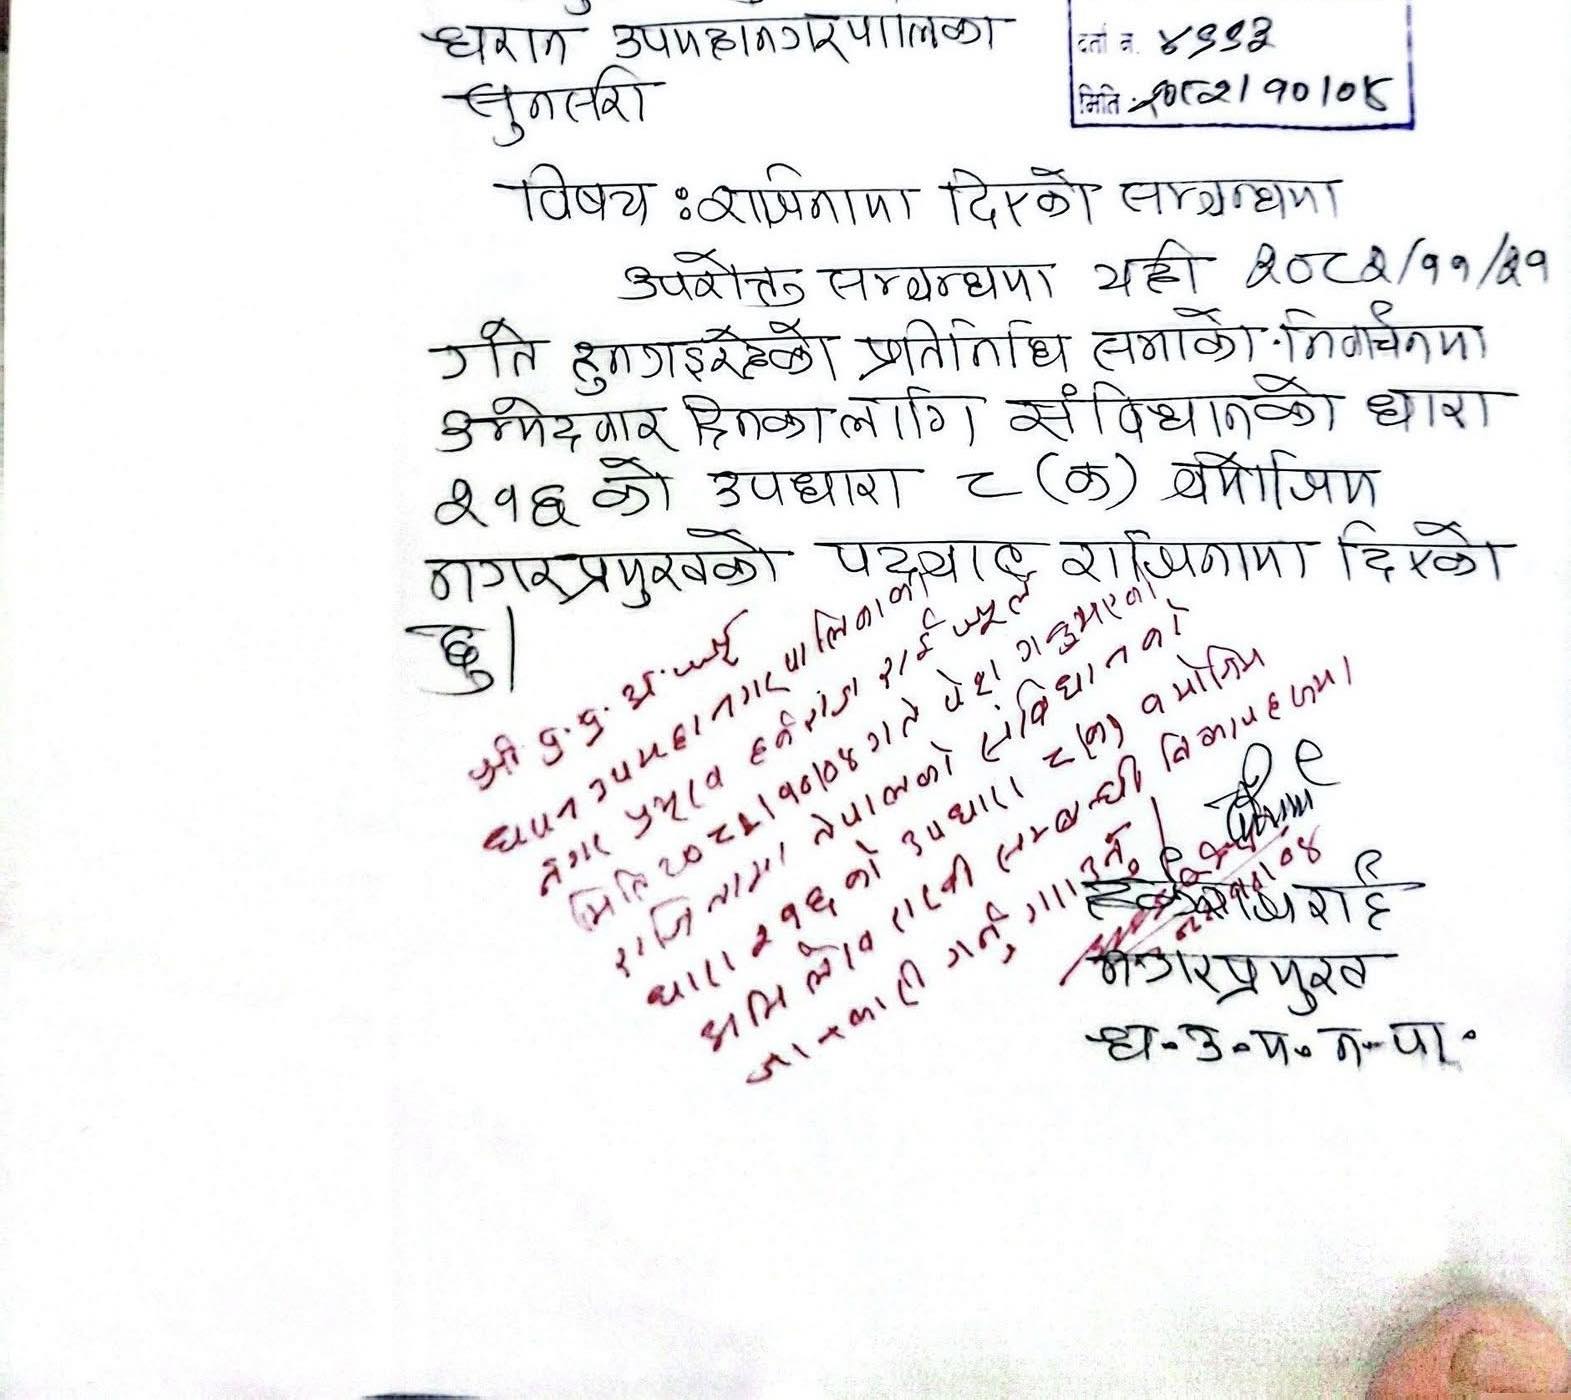 धरान उपमहानगरपालिका
दर्ता नं. ४११३
सुनसरी
मिति: २०८२/१०/०४
विषय: राजिनामा दिएको सम्बन्धमा
उपरोक्त सम्बन्धमा यही २०८२/११/२१
गते हुनगइरहेको प्रतिनिधि सभाको निर्वाचनमा
उम्मेदवार दिनका लागि संविधानको धारा
२१६ को उपधारा ८ (क) बमोजिम
नगरप्रमुखको पदबाट राजिनामा दिएको
छु।
श्री प्र.प्र.अ.ज्यू
धरान उपमहानगरपालिकाका
नगर प्रमुख हर्कराज राई ज्यूले
मिति २०८२।१०।०४ गते पेश गर्नुभएको
राजिनामा नेपालको संविधानको
धारा २१६ को उपधारा ८(क) बमोजिम
अभिलेख राखी सम्बन्धी निकायहरुमा
जानकारी गर्नु गराउनु।
राई
नगरप्रमुख
ध.उ.म.न.पा.